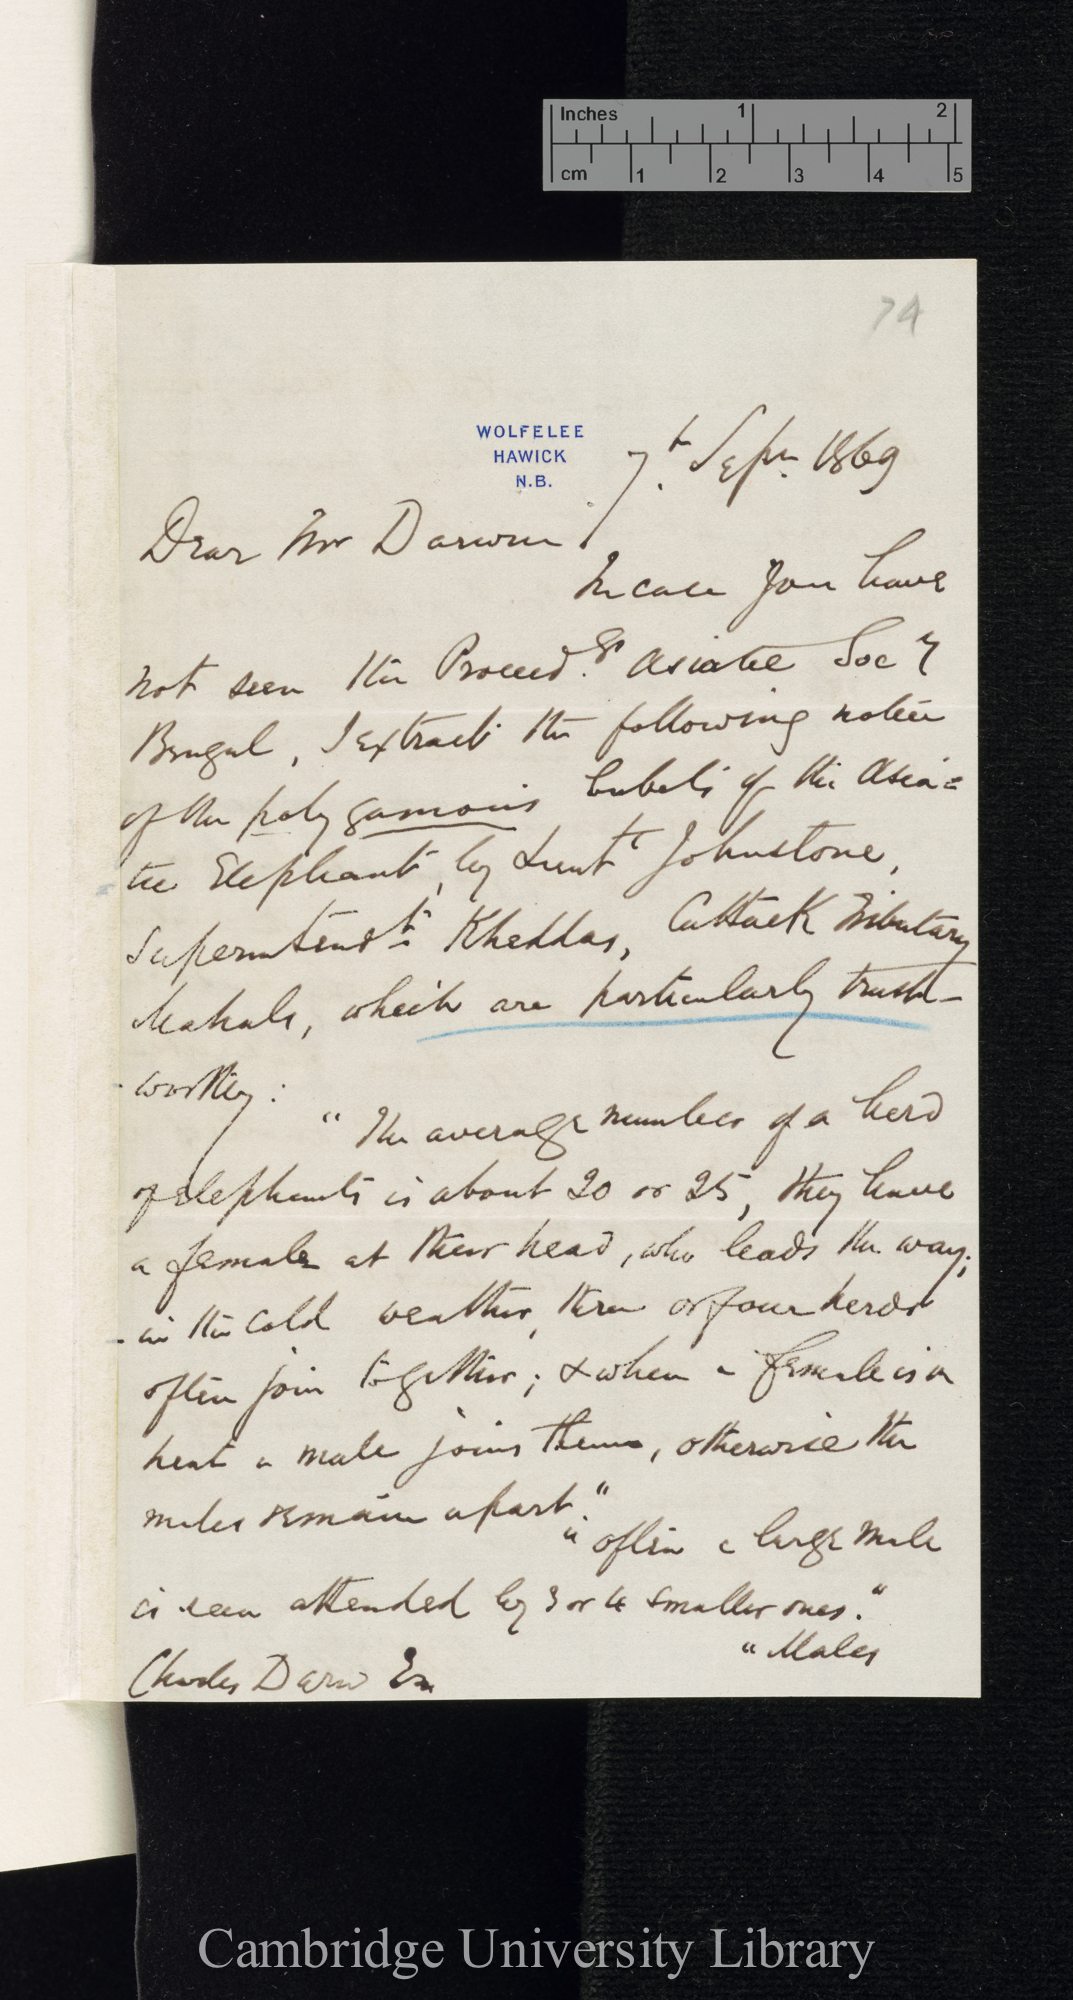 Inches 1 2
cm 1 2 3 4 5
74
WOLFELEE
HAWICK
N.B.
7th. Sepr. 1869
Dear Mr Darwin
In case you have
not seen the Proceed.gs Asiatic Socy
Bengal, I extract the following notice
of the polygamous habits of the Asia=
tic Elephant, by Lieutt Johnstone,
Superintendt. Kheddas, Cuttack Tributary
Mahals, which are particularly trust-
worthy:
"The average number of a herd
of elephants is about 20 or 25, they have
a female at their head, who leads the way;
in the cold weather, three or four herds
often join together; & when a female is in
heat a male joins them, otherwise the
males remain apart."
"often a large male
is seen attended by 3 or 4 smaller ones."
"Males
Charles Darwin Esq
Cambridge University Library